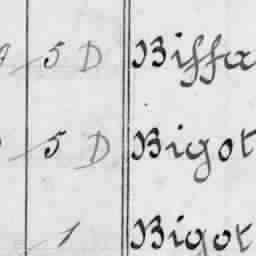 5 D Biffa
5 D Bigot
1 Bigot